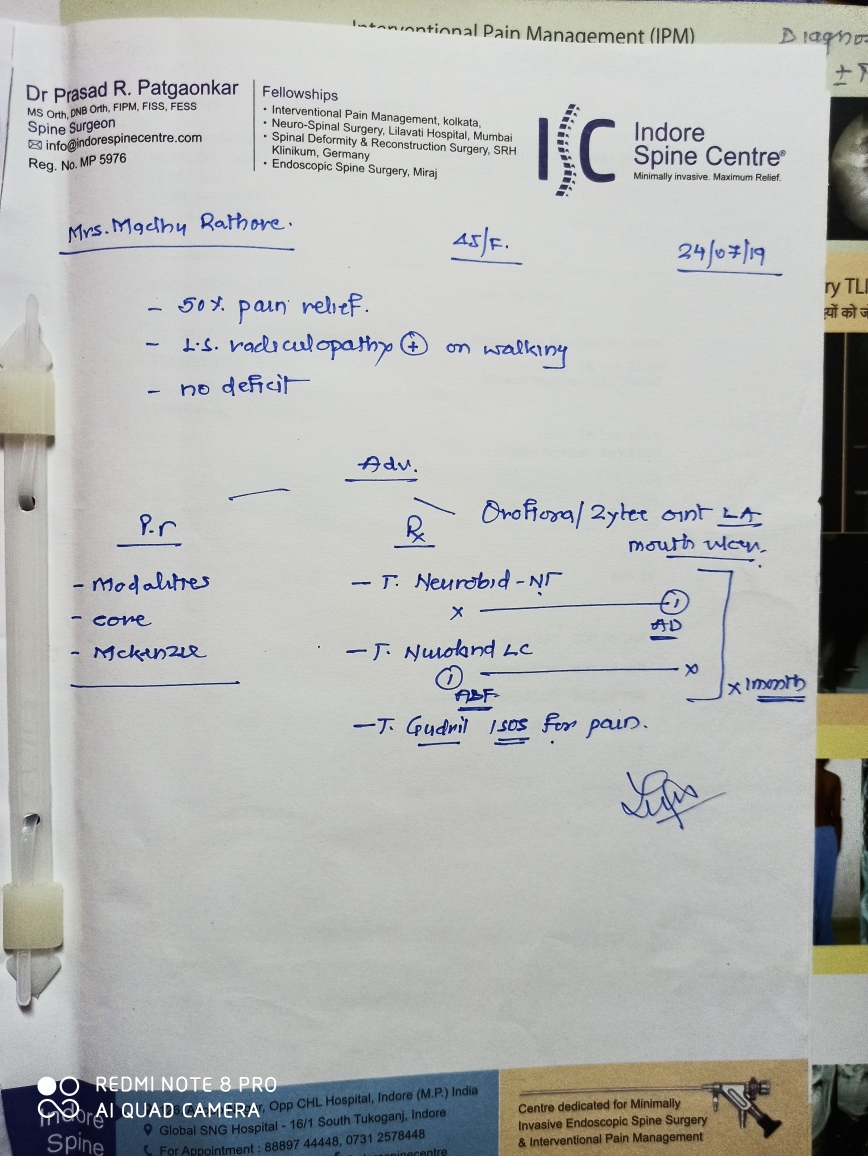 Interventional Pain Management (IPM)
Dr Prasad R. Patgaonkar
MS Orth, DNB Orth, FIPM, FISS, FESS
Spine Surgeon
info@indorespinecentre.com
Reg. No. MP 5976
Fellowships
• Interventional Pain Management, kolkata,
• Neuro-Spinal Surgery, Lilavati Hospital, Mumbai
• Spinal Deformity & Reconstruction Surgery, SRH
Klinikum, Germany
• Endoscopic Spine Surgery, Miraj
ISC
Indore
Spine Centre®
Minimally invasive. Maximum Relief.
Mrs. Madhu Rathore.
45/F.
24/07/19
- 50% pain relief.
- L.S. radiculopathy ⊕ on walking
- no deficit
Adv.
P.T
- Modalites
- core
- Mckenzie
Rx
Oroflora/Zytee oint LA
mouth ulcer.
- T. Neurobid-NT
x ① 
AD
- T. LC
① x
ABF
x 1month
- T. 1sos for pain.
REDMI NOTE 8 PRO
AI QUAD CAMERA
Indore
Spine
Opp CHL Hospital, Indore (M.P.) India
Global SNG Hospital - 16/1 South Tukoganj, Indore
For Appointment : 88897 44448, 0731 2578448
Centre dedicated for Minimally
Invasive Endoscopic Spine Surgery
& Interventional Pain Management
ry TLI